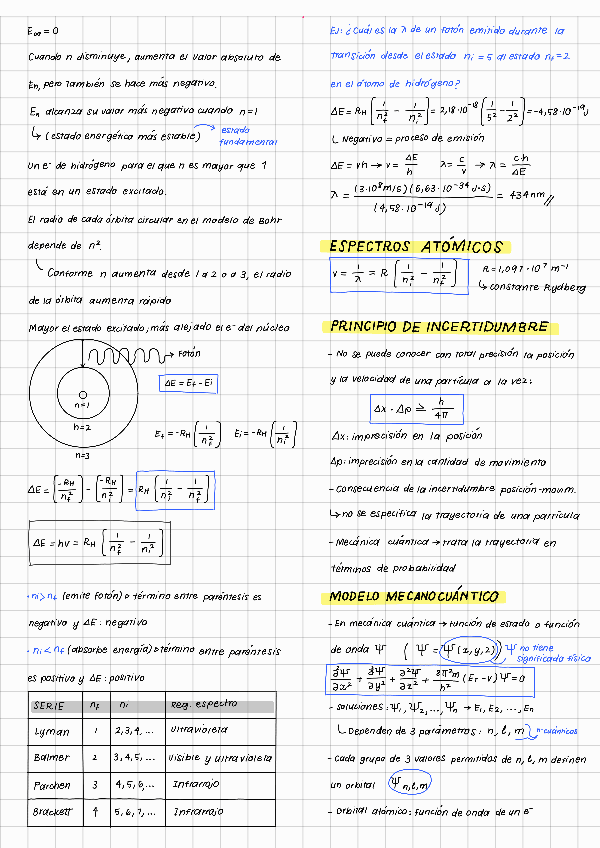 E∞ = 0
Cuando n disminuye, aumenta el valor absoluto de
En, pero también se hace más negativo.
En alcanza su valor más negativo cuando n=1
↳ (estado energético más estable) → estado
fundamental
Un e⁻ de hidrógeno para el que n es mayor que 1
está en un estado excitado.
El radio de cada órbita circular en el modelo de Bohr
depende de n².
Conforme n aumenta desde 1 a 2 o a 3, el radio
de la órbita aumenta rápido
Mayor el estado excitado, más alejado el e⁻ del núcleo
→ Fotón
ΔE = Ef - Ei
n=1
n=2
n=3
Ef = -RH [1/nf²] Ei = -RH [1/ni²]
ΔE = [-RH/nf²] - [-RH/ni²] = RH [1/ni² - 1/nf²]
ΔE = hν = RH [1/nf² - 1/ni²]
· ni > nf (emite fotón) → término entre paréntesis es
negativo y ΔE: negativo
· ni < nf (absorbe energía) → término entre paréntesis
es positivo y ΔE: positivo
SERIE nf ni Reg. espectro
Lyman 1 2, 3, 4, ... Ultravioleta
Balmer 2 3, 4, 5, ... Visible y ultravioleta
Parchen 3 4, 5, 6, ... Infrarrojo
Brackett 4 5, 6, 7, ... Infrarrojo
EJ: ¿Cuál es la λ de un fotón emitido durante la
transición desde el estado ni = 5 al estado nf = 2
en el átomo de hidrógeno?
ΔE = RH [1/nf² - 1/ni²] = 2,18·10⁻¹⁸ [1/5² - 1/2²] = -4,58·10⁻¹⁹ J
↳ Negativo = proceso de emisión
ΔE = νh → ν = ΔE/h λ = c/ν → λ = c·h/ΔE
λ = (3·10⁸ m/s)(6,63·10⁻³⁴ J·s)/(4,58·10⁻¹⁹ J) = 434 nm //
ESPECTROS ATÓMICOS
ν = 1/λ = R [1/ni² - 1/nf²] R = 1,097·10⁷ m⁻¹
↳ constante Rydberg
PRINCIPIO DE INCERTIDUMBRE
- No se puede conocer con total precisión la posición
y la velocidad de una partícula a la vez:
Δx · Δp ≥ h/4π
Δx: imprecisión en la posición
Δp: imprecisión en la cantidad de movimiento
- Consecuencia de la incertidumbre posición-movim.
↳ no se especifica la trayectoria de una partícula
- Mecánica cuántica → trata la trayectoria en
términos de probabilidad
MODELO MECANOCUÁNTICO
- En mecánica cuántica → función de estado o función
de onda Ψ ( Ψ = Ψ(x, y, z)) Ψ no tiene
significado físico
∂²Ψ/∂x² + ∂²Ψ/∂y² + ∂²Ψ/∂z² + 8π²m/h² (ET - V)Ψ = 0
- Soluciones: Ψ1, Ψ2, ..., Ψn → E1, E2, ..., En
↳ Dependen de 3 parámetros: n, l, m → nº cuánticos
- Cada grupo de 3 valores permitidos de n, l, m definen
un orbital Ψn,l,m
- Orbital atómico: función de onda de un e⁻